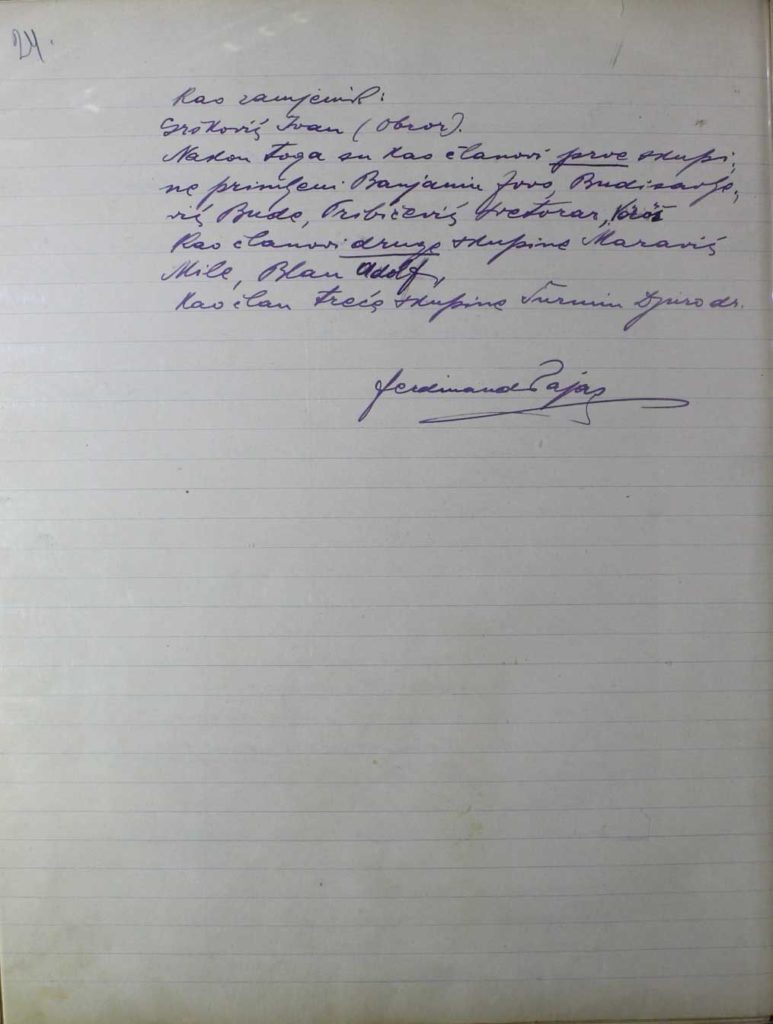 24.
Kao zamjenik:
Gršković Ivan (Obzor).
Nakon toga su kao članovi prve skupi-
ne primljeni Banjanin Jovo, Budisavlje-
vić Bude, Pribičević Svetozar, Vörös
Kao članovi druge skupine Maravić
Mile, Blau Adolf,
Kao član treće skupine Šurmin Djuro dr.
Ferdinand Pajas